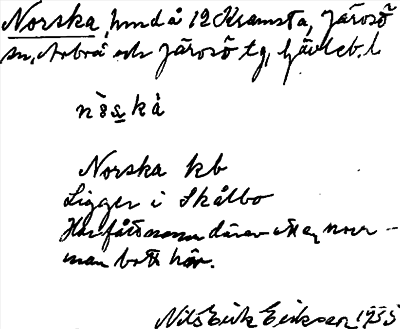 Norska, hmd å 12 Kramsta, Järvsö
sn, Arbrå och Järvsö tg, Gävleb. l
Norska kb
Ligger i Skålbo
Har fått namn därav att en norr-
man bott här.
Nils Erik Eriksson 1935